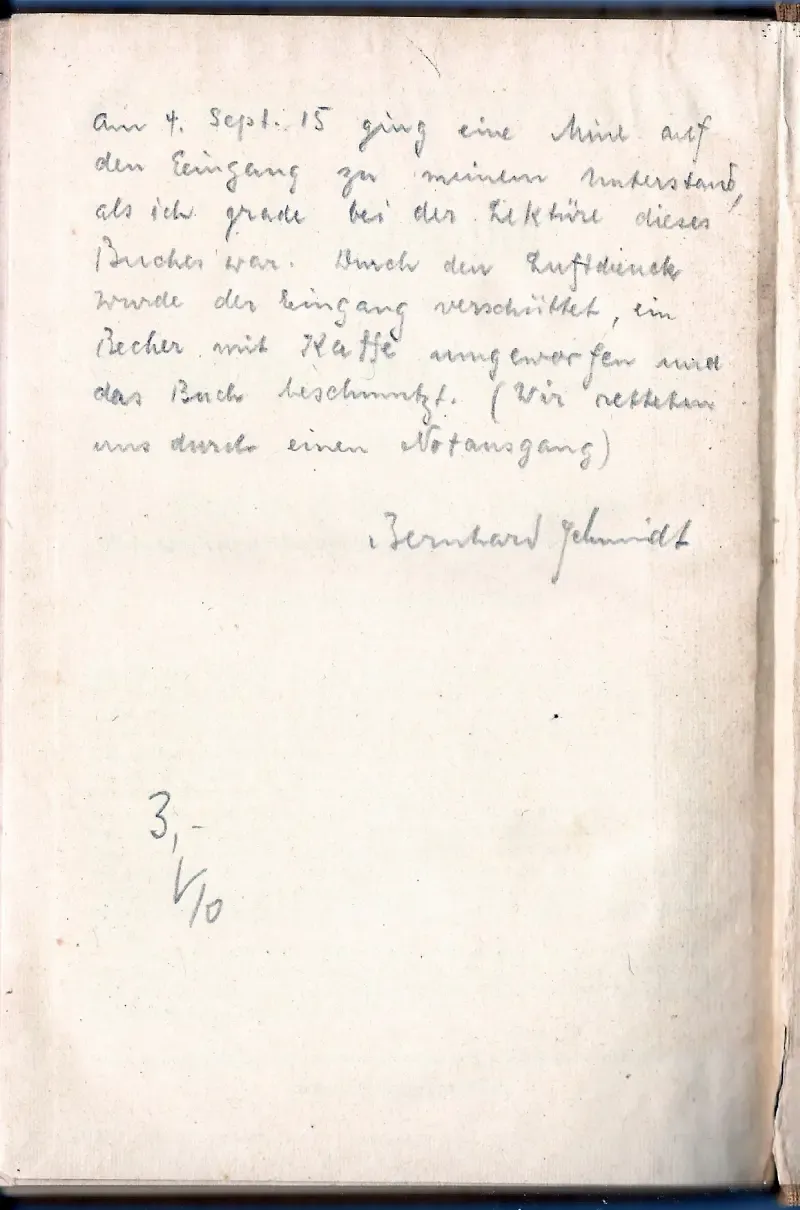 Am 4. Sept. 15 ging eine Mine auf
den Eingang zu meinem Unterstand,
als ich grade bei der Lektüre dieses
Buches war. Durch den Luftdruck
wurde der Eingang verschüttet, ein
Becher mit Kaffe umgeworfen und
das Buch beschmutzt. (Wir retteten
uns durch einen Notausgang)
Bernhard Schmidt
3,-
V/10